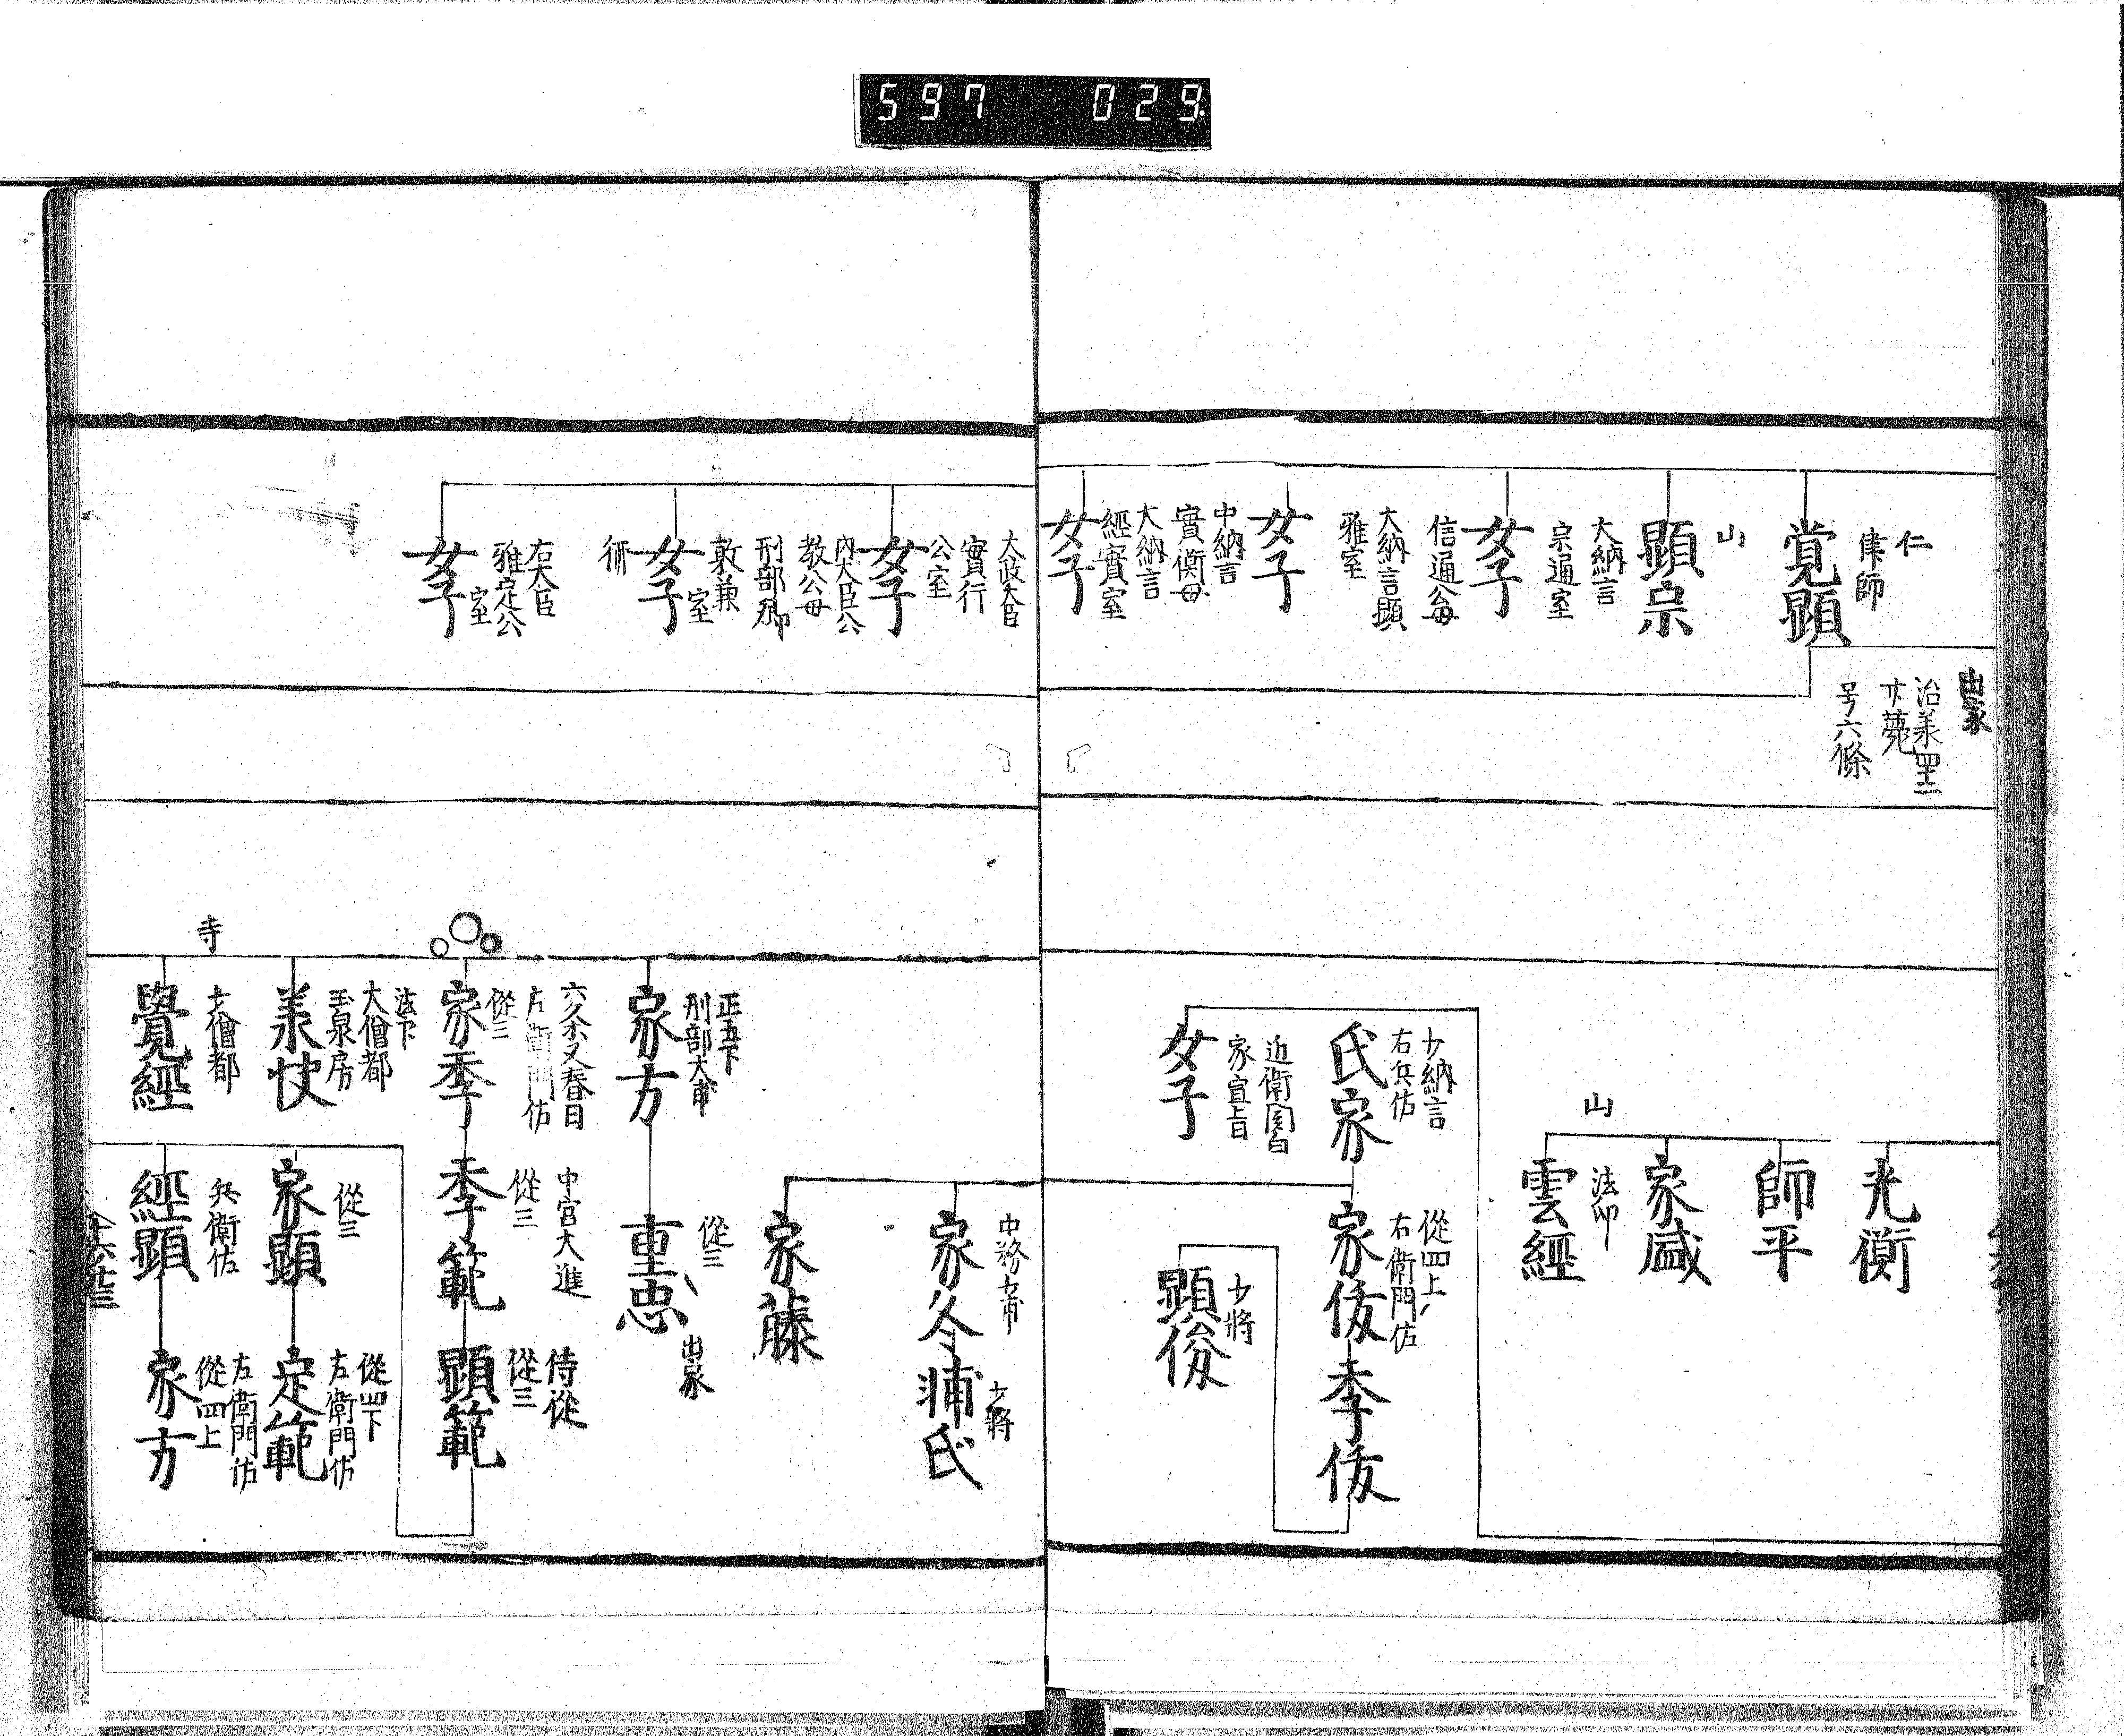 597 029
仁
律師
覚顕
山
顕宗
大納言
宗通室
女子
信通公母
大納言顕
雅室
女子
中納言
實衡母
大納言
經實室
女子
出家
号六條
山
光衡
師平
家盛
法印
雲經
少納言
右兵佐
氏家
近衛関白
家宣旨
女子
從四上
右衛門佐
家俊
季俊
少將
顕俊
大政大臣
實行
公室
女子
内大臣公
教公母
刑部卿
敦兼
室
女子
右大臣
雅定公
室
女子
中務少甫
家冬
少將
浦氏
家藤
正五下
刑部大甫
家方
從三
重忠
出家
左衛門佐
從三
家季
中宮大進
從三
季範
侍從
從三
顕範
法下
大僧都
玉泉房
從三
家顕
從四下
左衛門佐
定範
寺
少僧都
覺經
兵衛佐
經顕
左衛門佐
從四上
家方